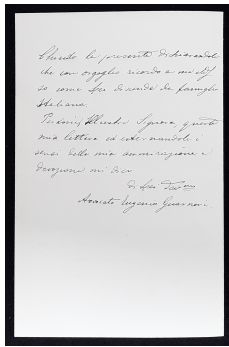 Chiudo la presente dichiarandole
che con orgoglio ricordo a me stes
so come Lei discenda da famiglia
Italiana.
Perdoni, Illustre Signora, questa
mia lettera ed esternandole i
sensi della mia ammirazione e
devozione mi dico
di Lei Dev.mo
Avvocato Eugenio